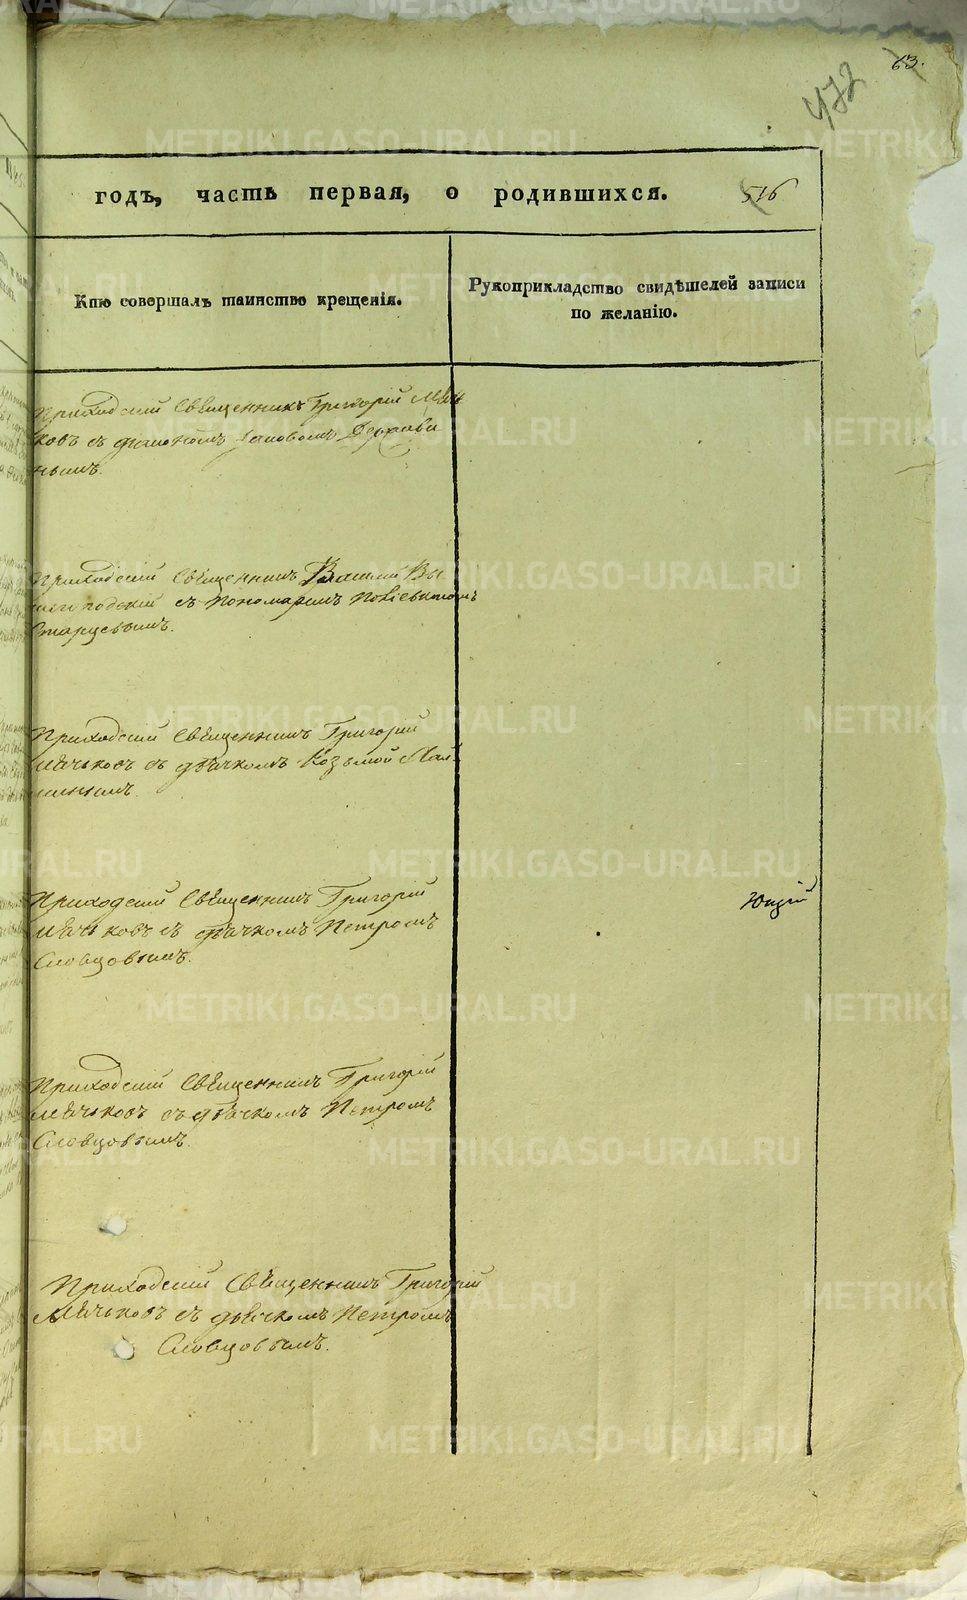 63.
472
годъ, часть первая, о родившихся. 516
Кто совершалъ таинство крещенія.
Рукоприкладство свидѣтелей записи
по желанію.
Приходскій Священникъ Григорій Мѣч
ковъ съ діакономъ Іаковомъ Держави
нымъ.
Приходскій Священникъ Василій Вы
подскій съ Пономаремъ
Старцевымъ.
Приходскій Священникъ Григорій
Мѣчьковъ съ дьячкомъ Козьмой
Приходскій Священникъ Григорій
Мѣчьковъ съ дьячкомъ Петромъ
Словцовымъ.
Ющій
Приходскій Священникъ Григорій
Мѣчьковъ съ дьячкомъ Петромъ
Словцовымъ.
Приходскій Священникъ Григорій
Мѣчьковъ съ дьячкомъ Петромъ
Словцовымъ.
METRIKI.GASO-URAL.RU